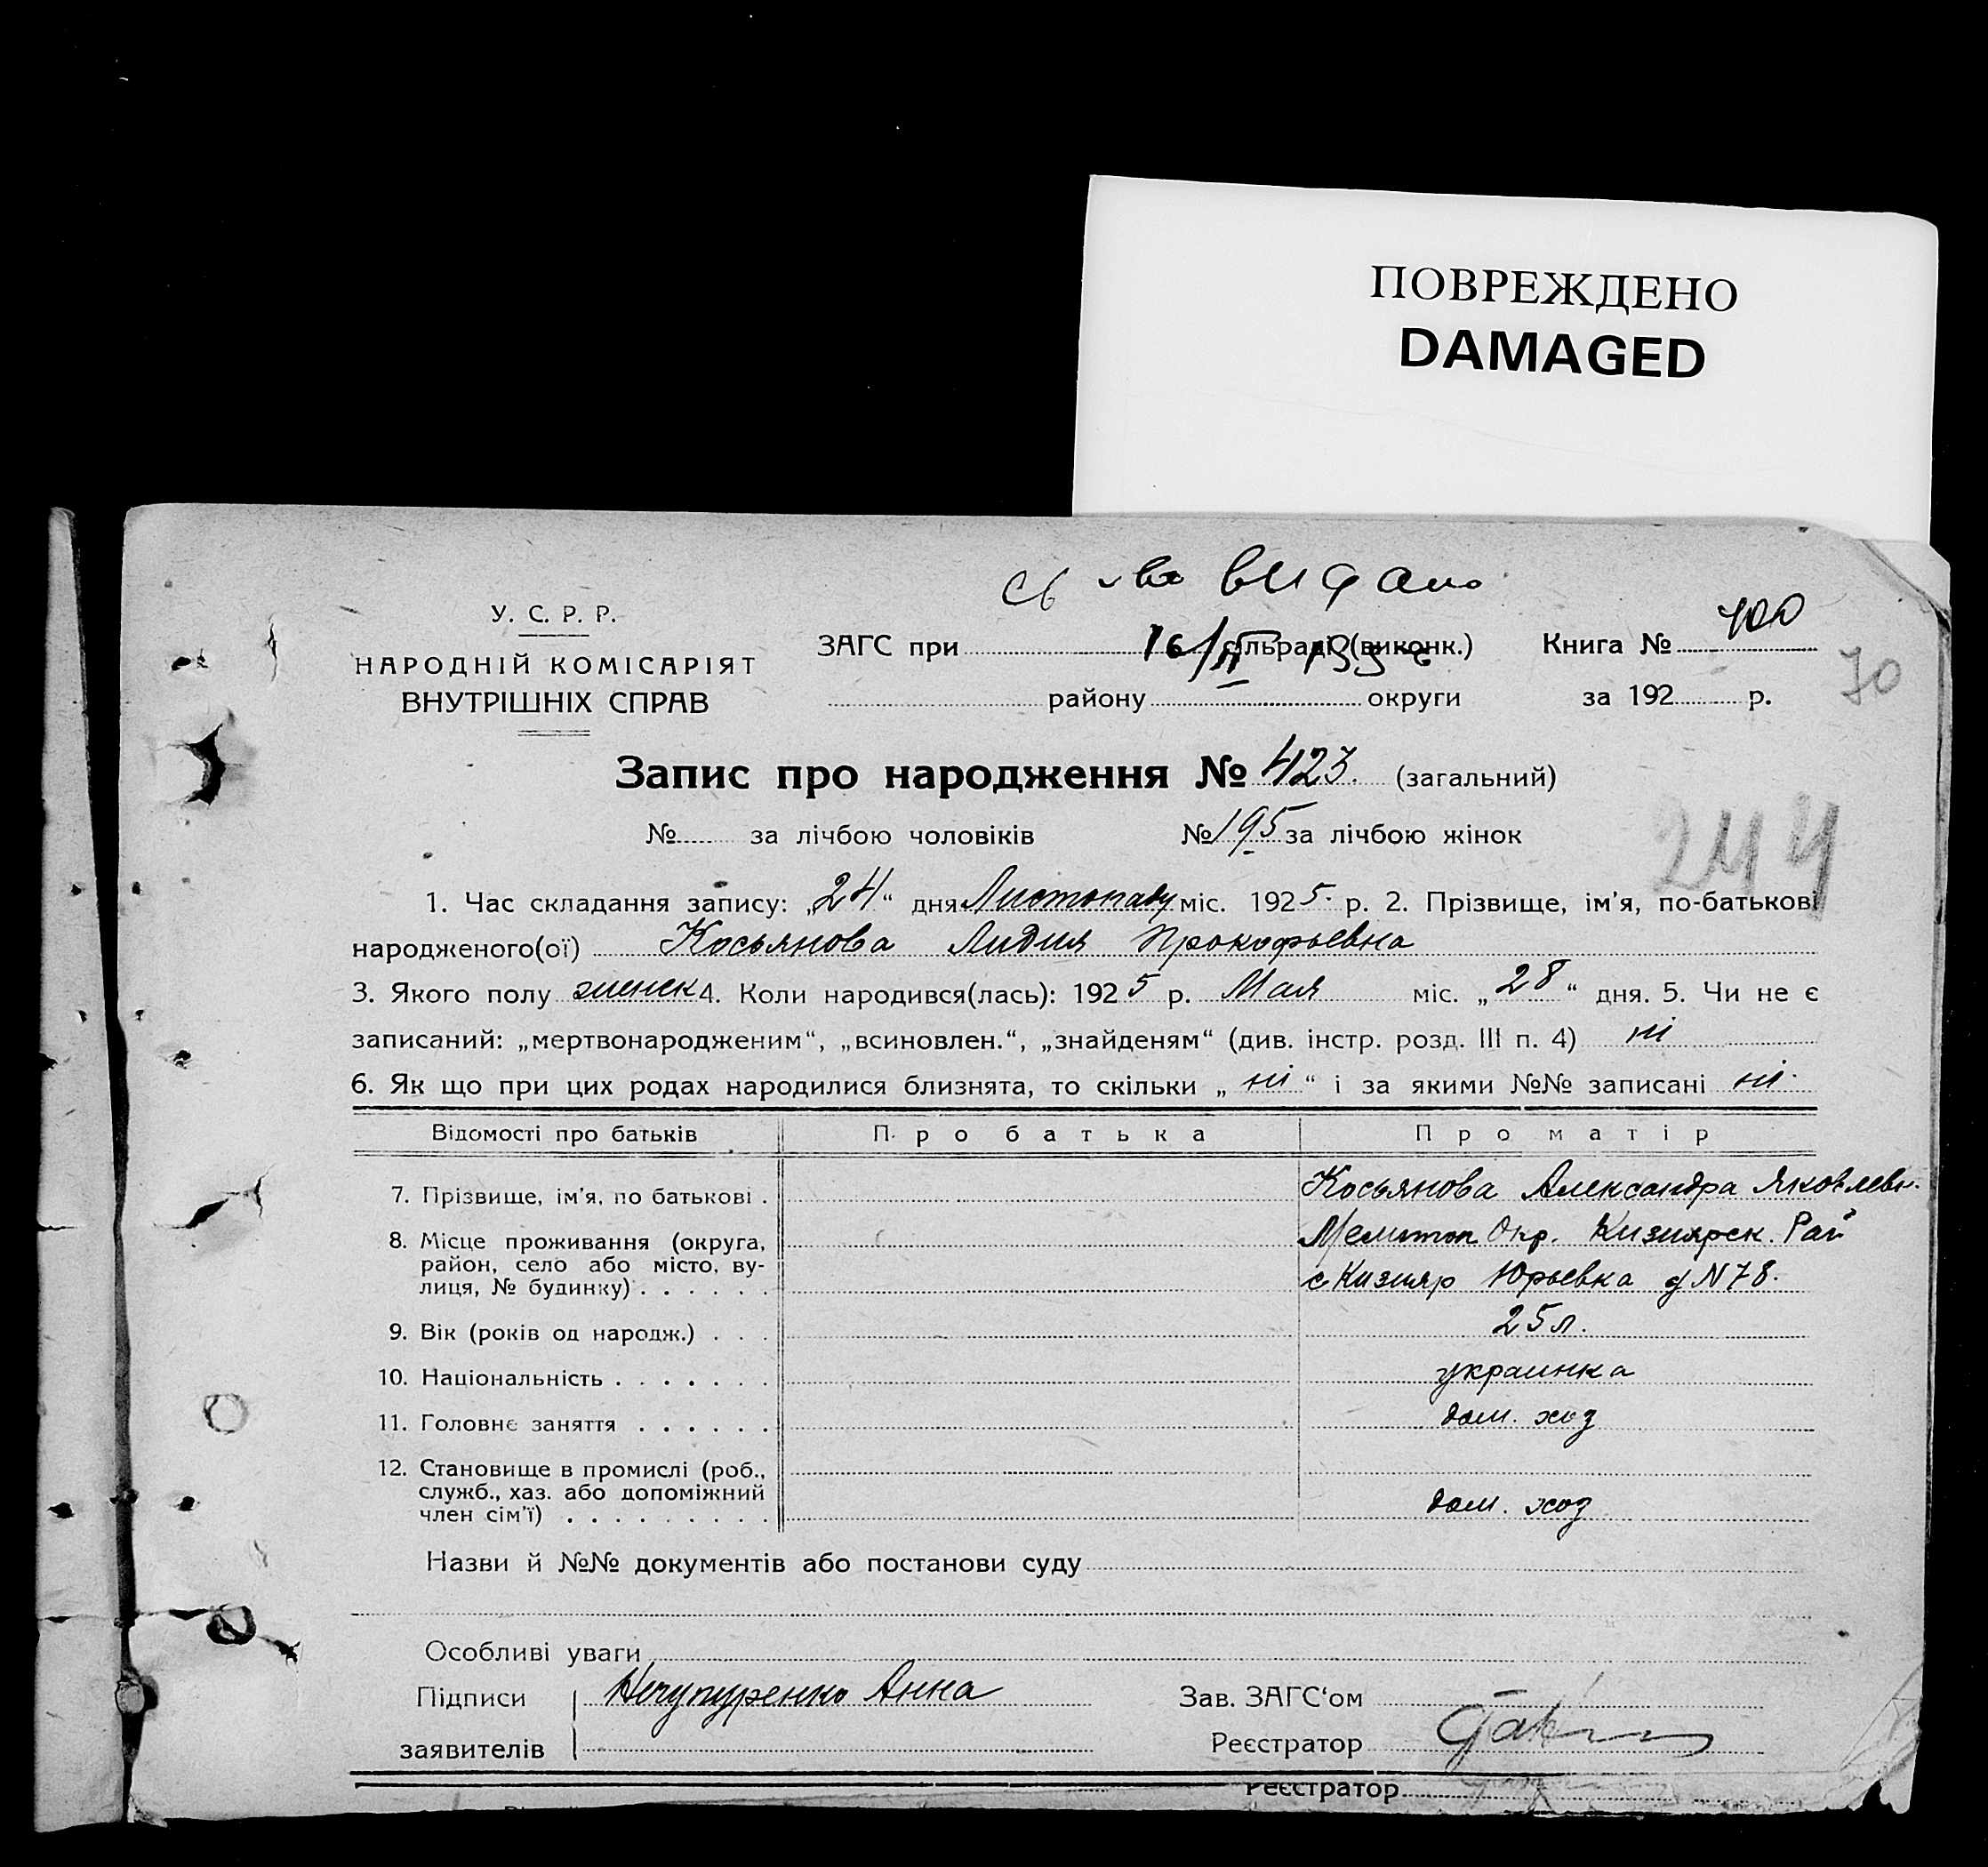 ПОВРЕЖДЕНО
DAMAGED
видано
У. С. Р. Р.
НАРОДНІЙ КОМІСАРІЯТ
ВНУТРІШНІХ СПРАВ
ЗАГС при 16/II сільраді (виконк.)
Книга № 400
70
району округи
за 192 р.
Запис про народження № 423. (загальний)
№ за лічбою чоловіків № 195 за лічбою жінок
244
1. Час складання запису: „24“ дня Листопаду міс. 1925 р. 2. Прізвище, ім'я, по-батькові
народженого(ої) Косьянова Лидия Прокофьевна
3. Якого полу женск 4. Коли народився(лась): 1925 р. Мая міс. „28“ дня. 5. Чи не є
записаний: „мертвонародженим“, „всиновлен.“, „знайденям“ (див. інстр. розд. III п. 4) ні
6. Як що при цих родах народилися близнята, то скільки „ні“ і за якими №№ записані ні.
Відомості про батьків Про батька Про матір
7. Прізвище, ім'я, по батькові . Косьянова Александра Яковлевн.
8. Місце проживання (округа, Мелитоп Окр. Кизиярск. Рай
район, село або місто, ву-
лиця, № будинку) . . . . . . с Кизияр Юрьевка д N 78.
9. Вік (років од народж.) . . . 25 л.
10. Національність . . . . . . . украинка
11. Головне заняття . . . . . . дом. хоз
12. Становище в промислі (роб.,
служб., хаз. або допоміжний
член сім'ї) . . . . . . . . . дом. хоз
Назви й №№ документів або постанови суду
Особливі уваги
Підписи Нечупуренко Анна Зав. ЗАГС‘ом
заявителів Реєстратор
Реєстратор